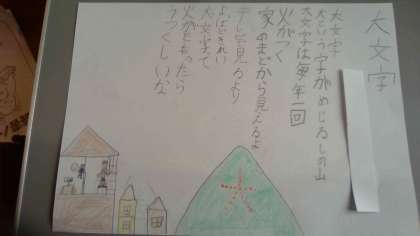 大文字
大文字
大という字がめじるしの山
大文字は毎年一回
火がつく
家のまどから見えるよ
テレビで見るより
よっぽどきれい
大文字って
火がともったら
うつくしいな